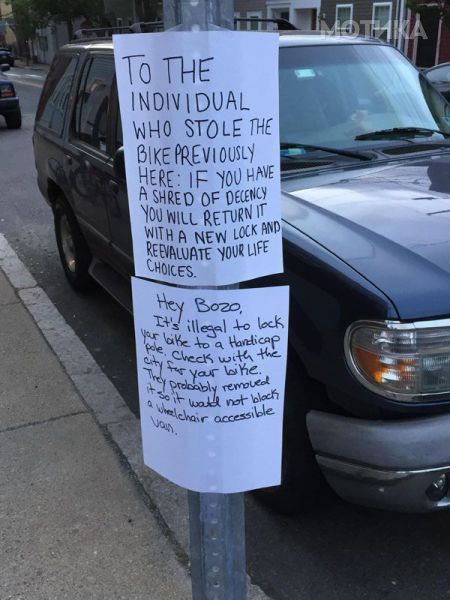 МОТИКА
TO THE
INDIVIDUAL
WHO STOLE THE
BIKE PREVIOUSLY
HERE: IF YOU HAVE
A SHRED OF DECENCY
YOU WILL RETURN IT
WITH A NEW LOCK AND
REEVALUATE YOUR LIFE
CHOICES.
Hey Bozo,
It's illegal to lock
your bike to a Handicap
pole. Check with the
city for your bike.
They probably removed
it so it would not block
a wheelchair accessible
van.